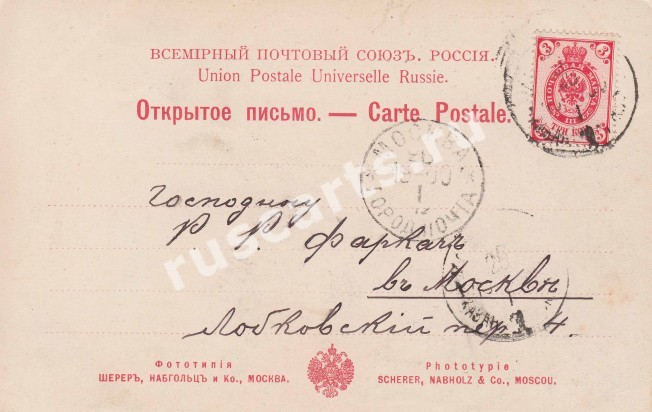 ВСЕМІРНЫЙ ПОЧТОВЫЙ СОЮЗЪ. РОССІЯ.
Union Postale Universelle Russie.
Открытое письмо. — Carte Postale.
3
МОСКВА
ГОРОД. ПОЧТА
Господину
Р. Р. Фаркачъ
въ Москвѣ
Лобковскій пер. 4.
Фототипія
ШЕРЕРЪ, НАБГОЛЬЦЪ и Ко., МОСКВА.
Phototypie
SCHERER, NABHOLZ & Co., MOSCOU.
rusearts.ru